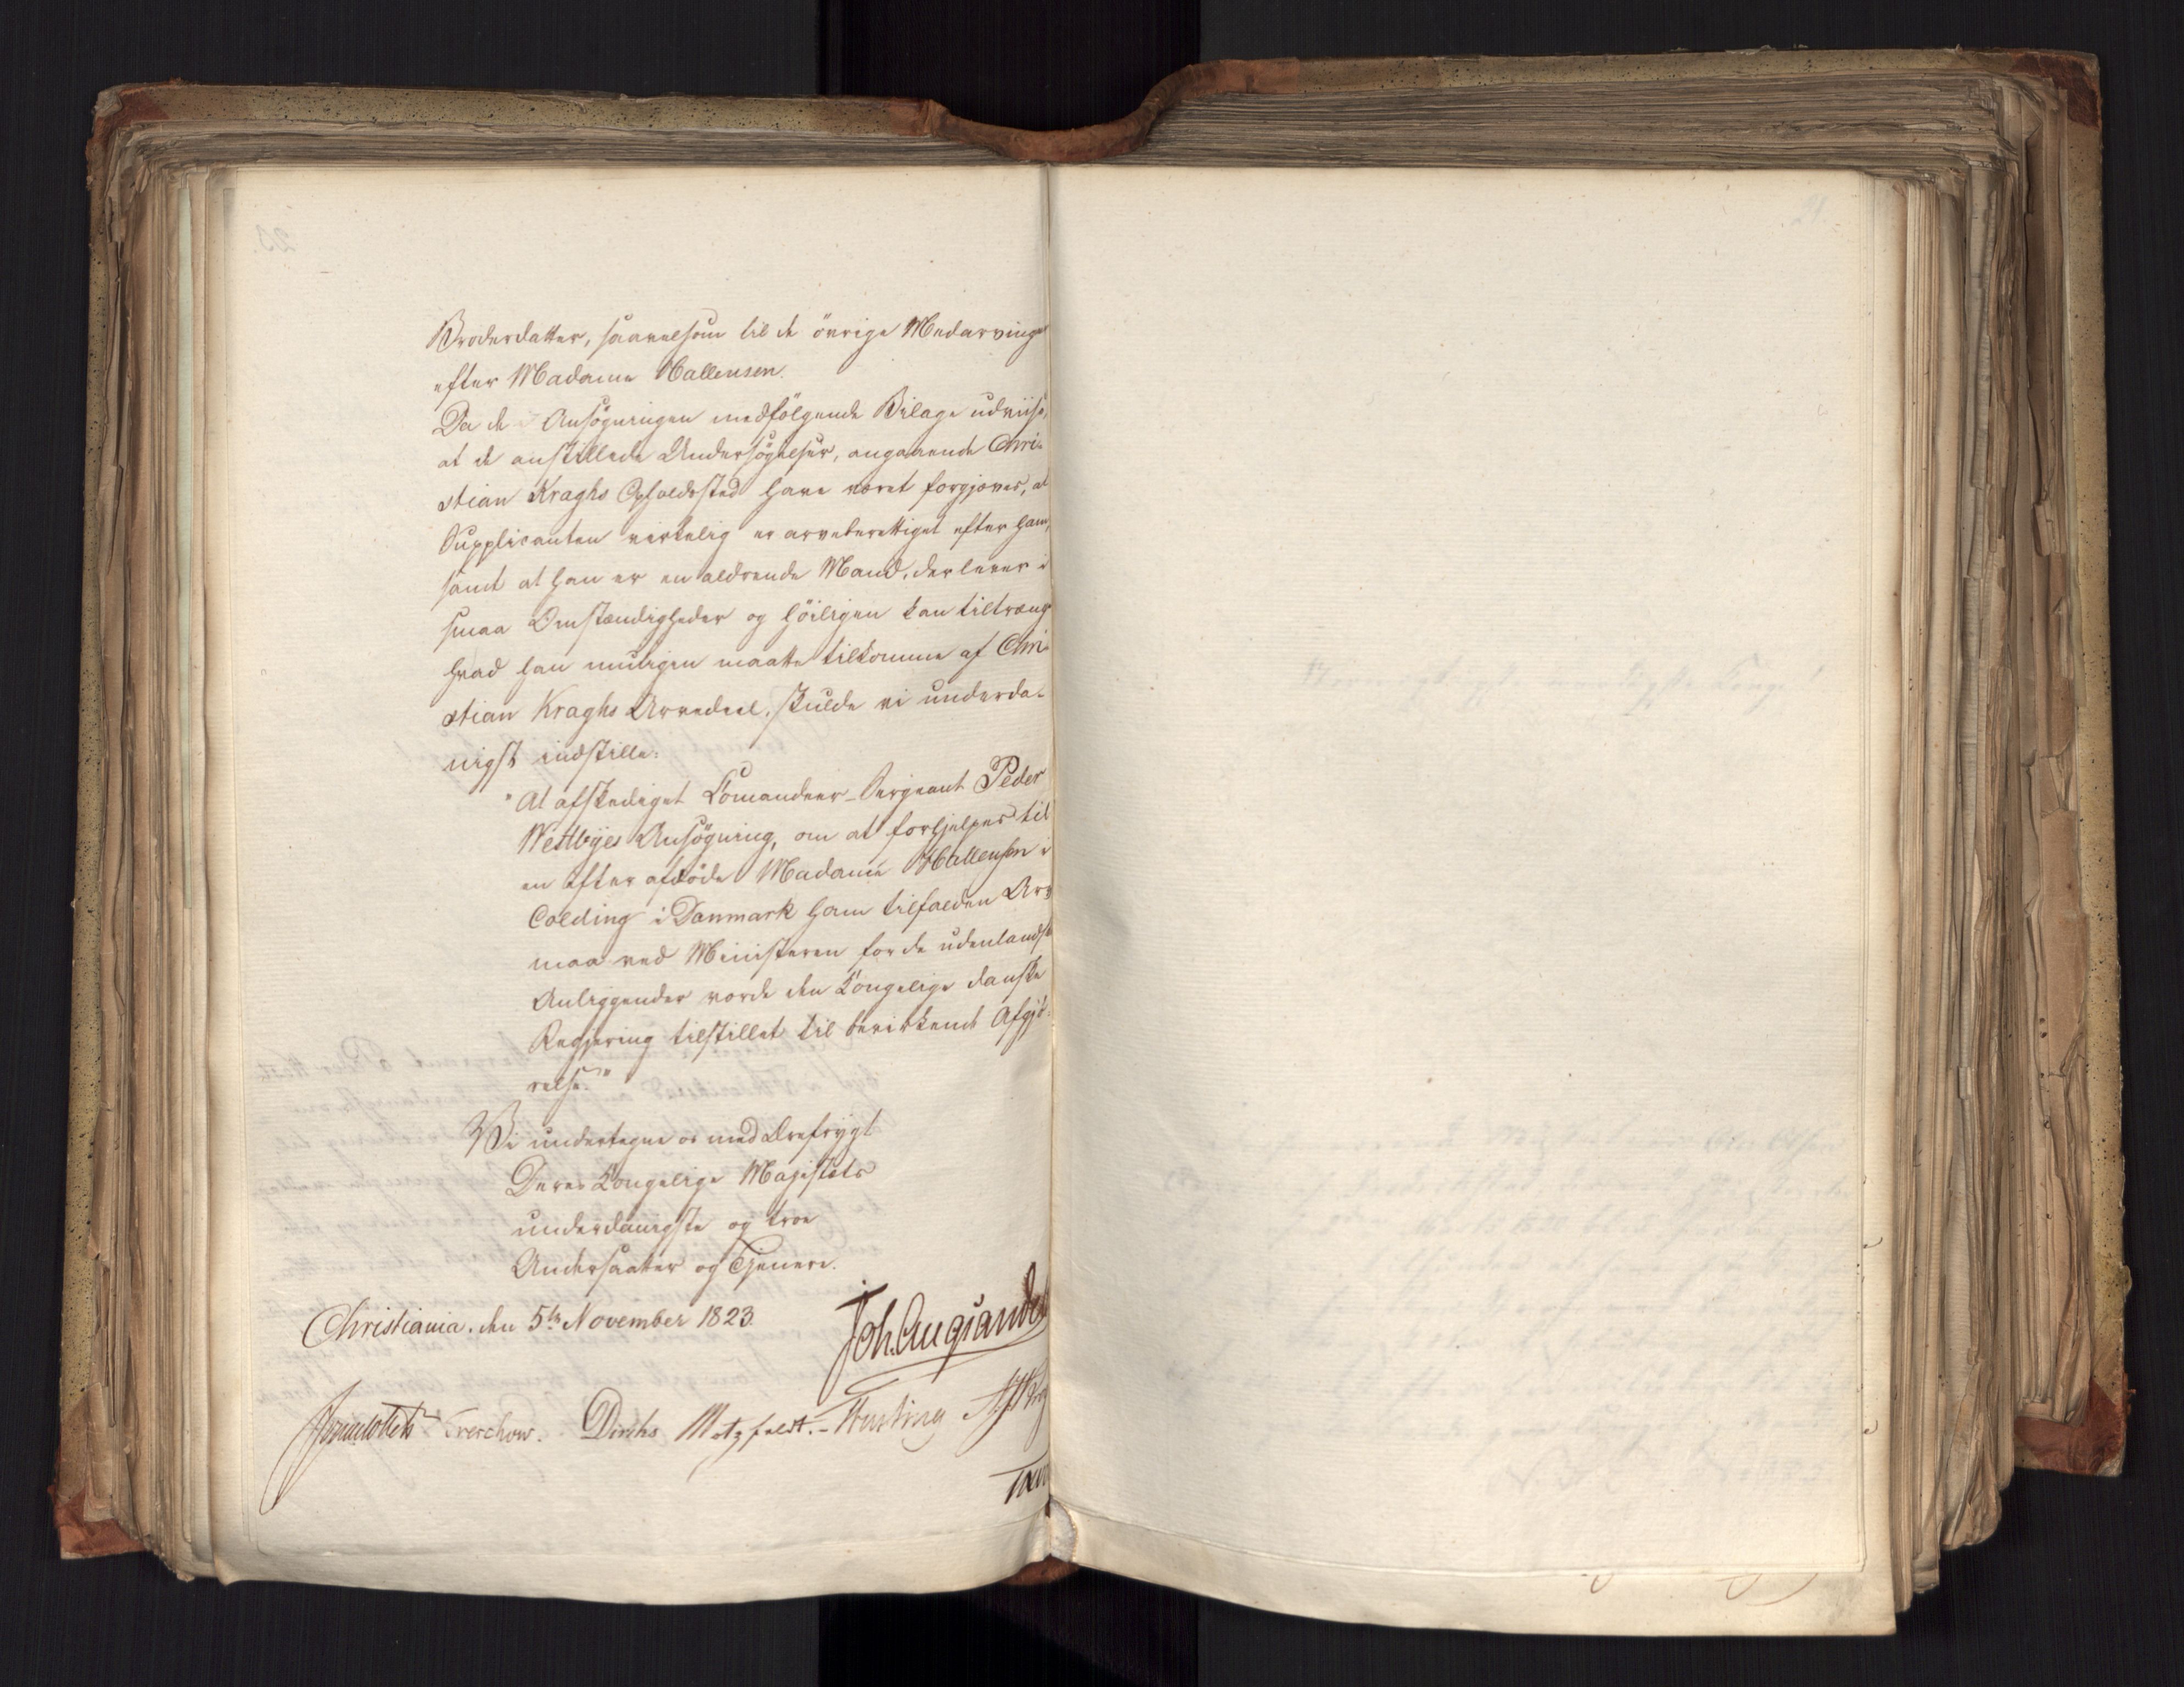 Broderdatter, saavelsom til de övrige Medarvinger
efter Madame Hallensen.
Da de Ansögningen medfölgende Bilage udviise,
at de anstillede Undersögelser, angaaende Chri-
stian Kraghs Opholdssted have været forgjæves, at
Supplicanten virkelig er arveberettiget efter ham,
samt at han er en aldrende Mand, der lever i
smaa Omstændigheder og höiligen kan tiltrænge
hvad han muligen maatte tilkomme af Chri-
stian Kraghs Arvedeel, skulde vi underda-
nigst indstille:
"At afskediget Comandeer-Sergeant Peder
Westbyes Ansögning, om at forhjelpes til
en efter afdöde Madame Hallensen i
Colding i Danmark ham tilfalden Arv
maa ved Ministeren for de udenlandske
Anliggender vorde den Kongelige danske
Regjering tilstillet til bevirkende Afgjö-
relse."
Vi undertegne os med Ærefrygt
Deres Kongelige Majestæts
underdanigste og troe
Undersaatter og Tjenere.
Christiania, den 5te November 1823.
Joh. Aug Sandels
Treschow. Diriks Motzfeldt.